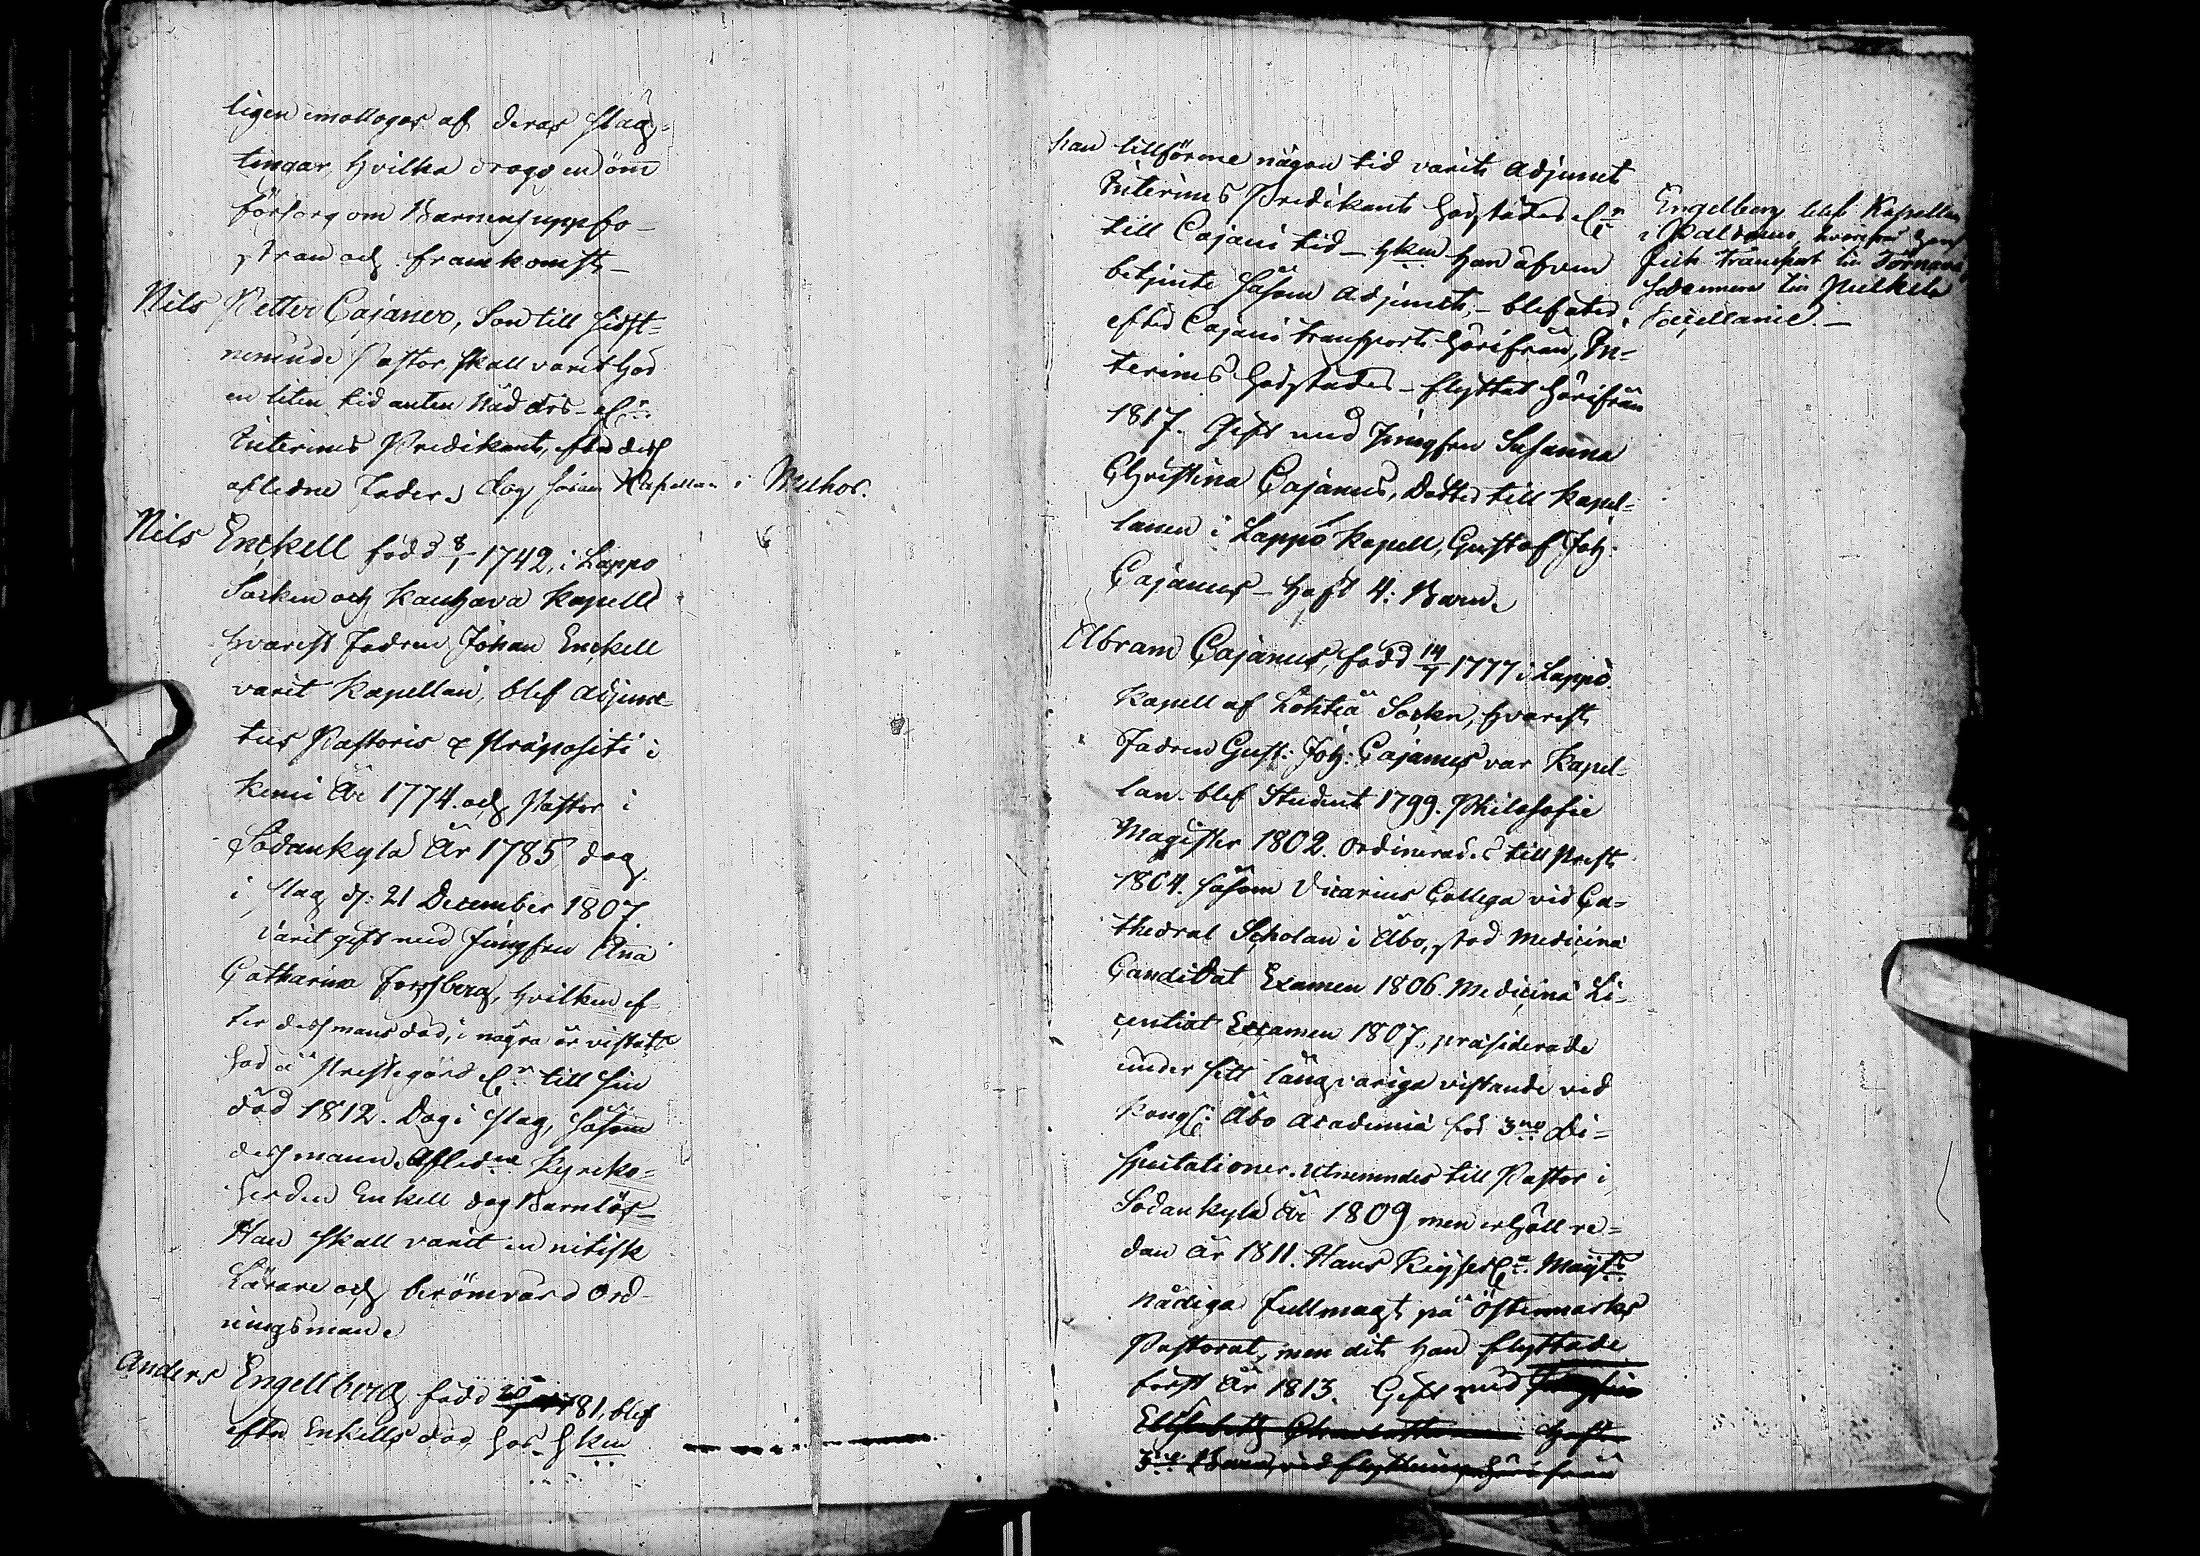 ligen emottogos af deras släg-
tingar, hvilka drogo en öm
försorg om Barnens uppfo-
stran och framkomst –
Nils Petter Cajaner, Son till sidst-
nemnde Pastor skall varit här
en liten tid anten Nådårs-
Interims Predikant, efter dess
aflidne Fader, dog såsom Kapellan i Muhos.
Nils Enckell född 8/1 1742, i Lappo
Socken och Kauhava Kapell
hvarest Fadren Johan Enckell
varit Kapellan, blef Adjunc-
tus Pastoris & Præpositi i
Kemi År 1774. och Pastor i
Sodankylä År 1785 dog
i slag d: 21 December 1807
varit gift med Jungfru Ana
Catharina Forssberg, hvilken ef-
ter dess mans död, i några år vistats
här å Prestegård till sin
död 1812. Dog i slag, såsom
dess mann. Aflidne Kyrko-
herden Enkell dog Barnlös –
Han skall varit en nitisk
Lärare och berömvärd Ord-
ningsman.
Anders Engellberg född 20 1781, blef
efter Enkells död, hos
han tillförne någon tid varit Adjunct
Interims Predikant härstädes
till Cajani tid – han äfven
betjente såsom Adjunct, – blef åter
efter Cajani transport härifrån, In-
terims härstädes – flyttat härifrån
1817. Gift med Jungfru Susanna
Christina Cajanus, Dotter till Kapel-
lanen i Lappo Kapell, Gustaf Joh:
Cajanus – Haft 4: Barn.
Engelberg blef Kapellan
i Paldamo, hvarifrån han
fick transport til Törnävä,
sedermera til Pulkila
Sacellanie. –
Abram Cajanus, född 14 1777 i Lappo
Kapell af Lohteå Socken, hvarest
Fadren Gust: Joh: Cajanus var Kapel-
lan. blef Student 1799. Philosofie
Magister 1802. Ordinerades till Prest
1804. såsom Vicarius Collega vid Ca-
thedral Scholan i Åbo, stod Medicinæ
Candidat Examen 1806. Medicinæ Li-
centiat Examen 1807., præsiderade
under sitt långvariga vistande vid
Kongl: Åbo Academiæ för 3ne Di-
sputationer. Utnemndes till Pastor i
Sodankylä År 1809 men erhöll re-
dan År 1811. Hans Keijserl: Maÿts
nådiga fullmagt på Östermarks
Pastorat, men dit han flyttade
först År 1813. Gift med Jungfru
Elisabeth haft
3ne Barn, vid flyttning härifrån